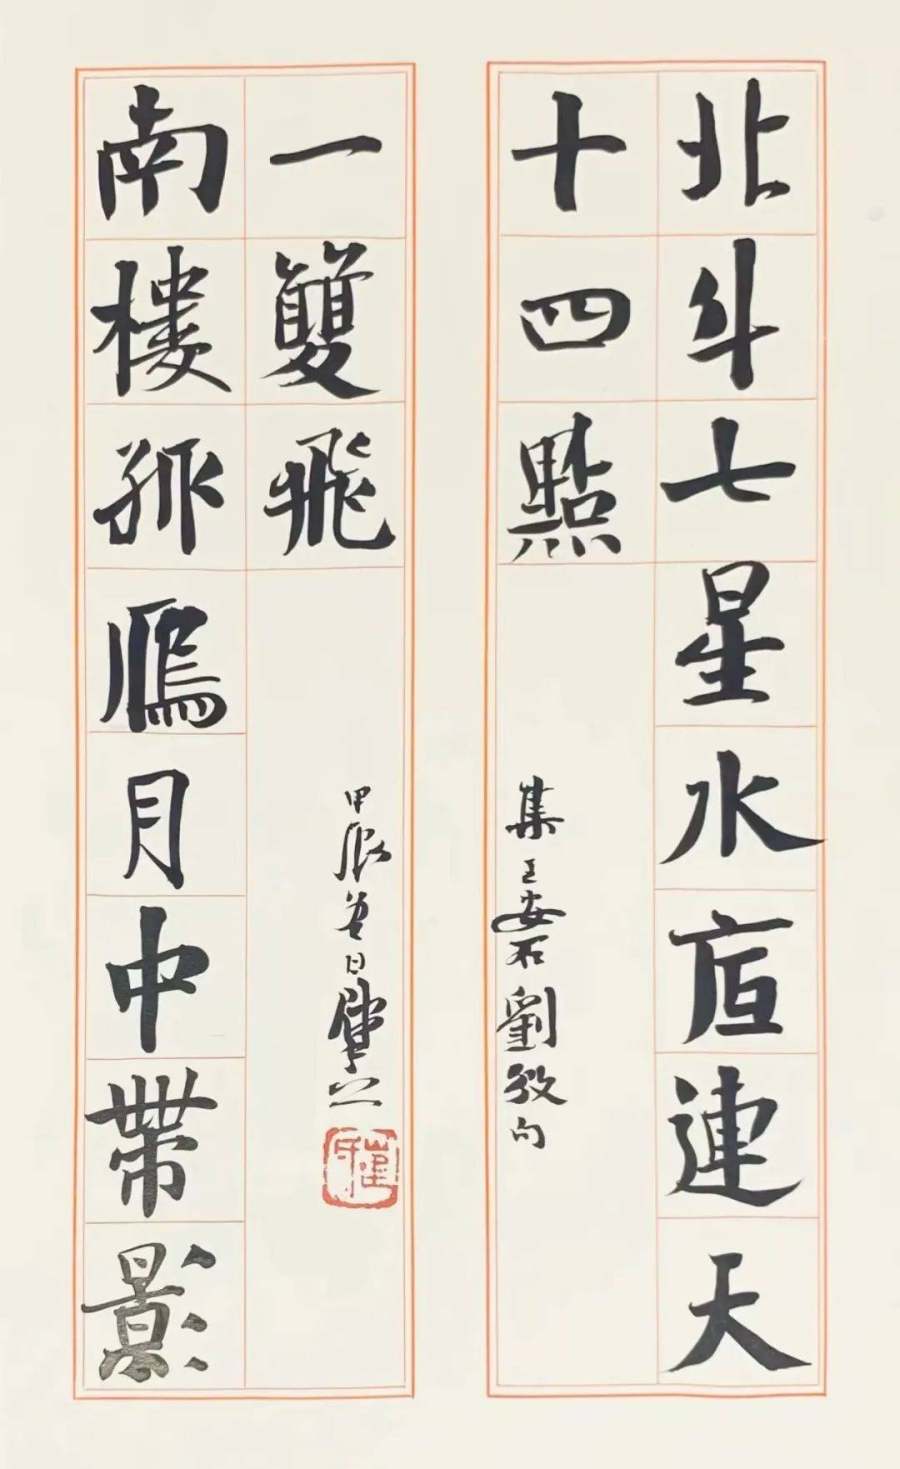 北斗七星水底連天
十四點
集王安石劉攽句
南樓孤鴈月中帶影
一雙飛
甲辰春日